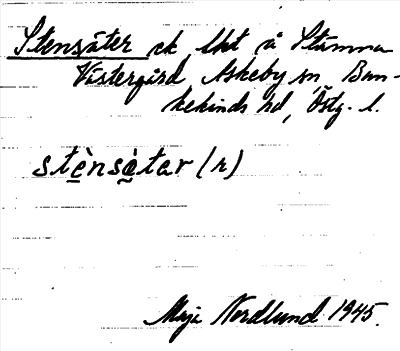 Stensäter ck lht å Stumma
Västergård Askeby sn, Ban-
kekinds hd, Östg. l.
stènsä̀tar (r)
Maja Nordlund 1945.